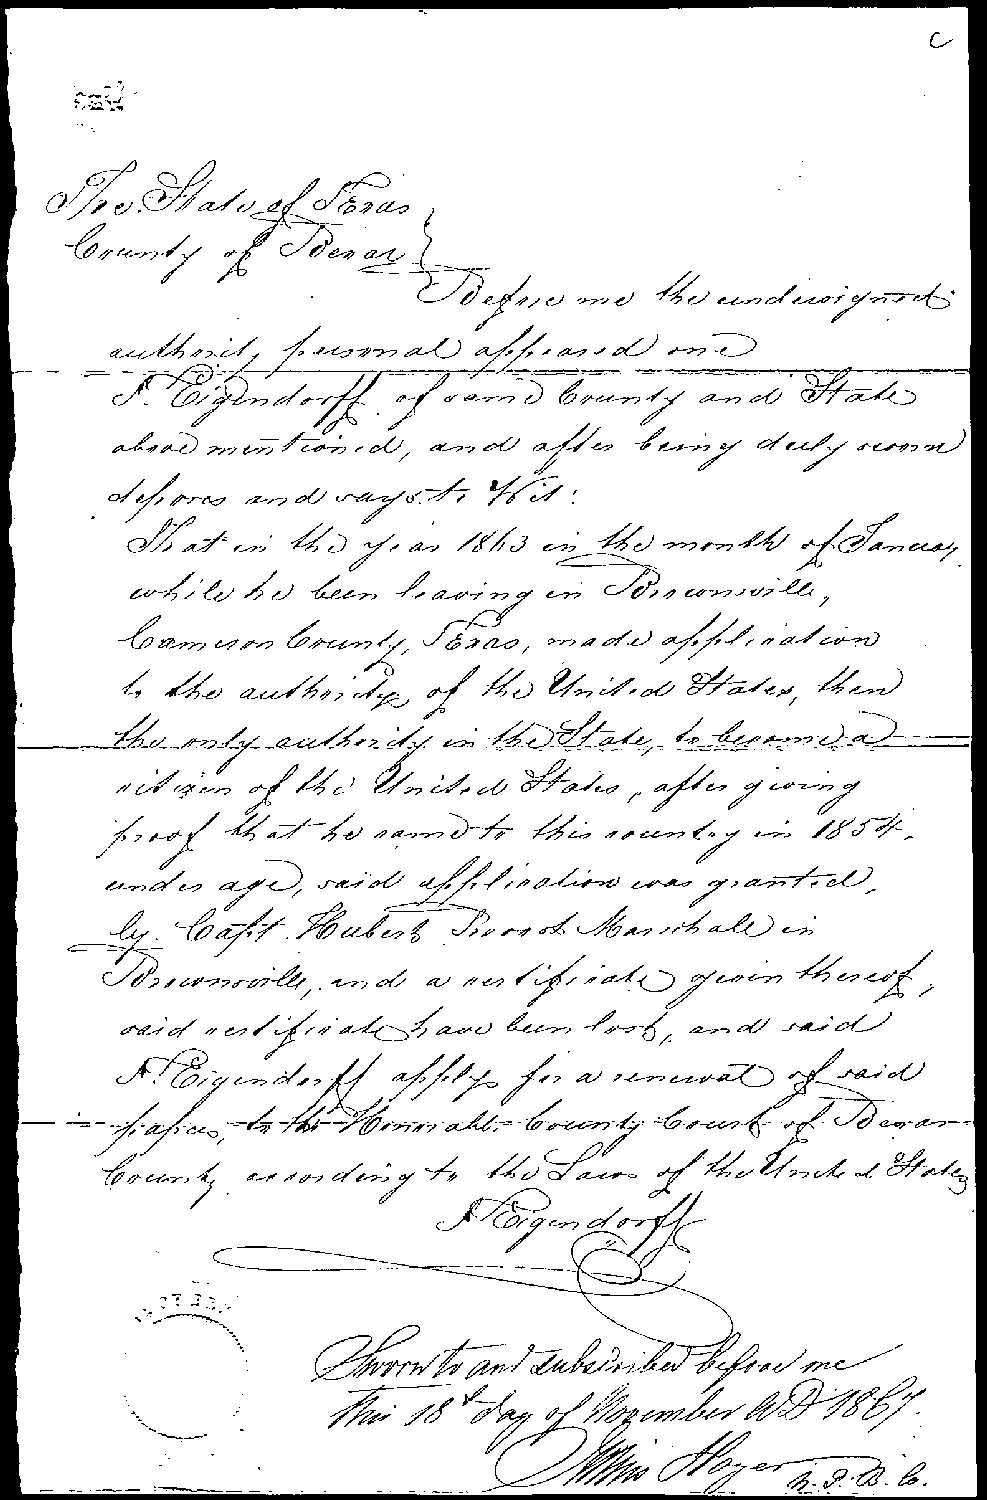 The State of Texas
County of Bexar
Before me the undersigned
authority personal appeared one
F. Eigendorff of same County and State
above mentioned, and after being duly sworn
deposes and says to Wit:
That in the year 1863 in the month of January
while he been leaving in Brownsville,
Cameron County, Texas, made application
to the authority of the United States, then
the only authority in the State, to become a
citizen of the United States, after giving
proof that he came to this country in 1854.
under age, said application was granted,
by Capt. Hubert Provost Marschall in
Brownsville, and a certificate given thereof,
said certificate have been lost, and said
F. Eigendorff apply for a renewal of said
papers, to the Honorable County Court of Bexar
County according to the Laws of the United States
F Eigendorff
Sworn to and subscribed before me
this 18t day of November AD 1867.
Julius Hoyer N.P.B.C.